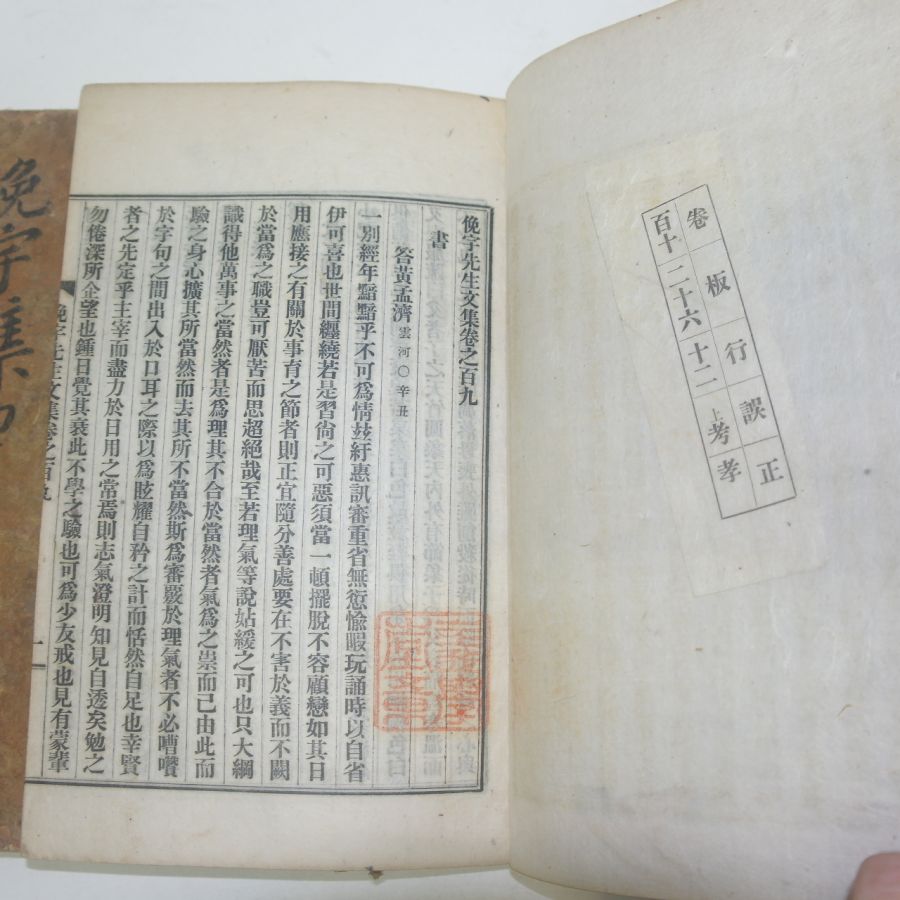 卷 板 行 誤 正
百十 二十六 十二上 考 孝
俛宇先生文集卷之百九
書
答黃孟濟雲河○辛丑
一別經年黯黯乎不可爲情玆紆惠訊審重省無愆愉暇玩誦時以自省
伊可喜也世間纏繞若是習尙之可惡須當一頓擺脫不容顧戀如其日
用應接之有關於事育之節者則正宜隨分善處要在不害於義而不闕
於當爲之職豈可厭苦而思超絕哉至若理氣等說姑緩之可也只大綱
識得他萬事之當然者是爲理其不合於當然者氣爲之祟而已由此而
驗之身心擴其所當然而去其所不當然斯爲審嚴於理氣者不必嘈囋
於字句之間出入於口耳之際以爲眩耀自矜之計而恬然自足也幸賢
者之先定乎主宰而盡力於日用之常焉則志氣澄明知見自透矣勉之
勿倦深所企望也鍾日覺其衰此不學之驗也可爲少友戒也見有蒙輩
俛宇先生文集卷之百九
一
俛宇集